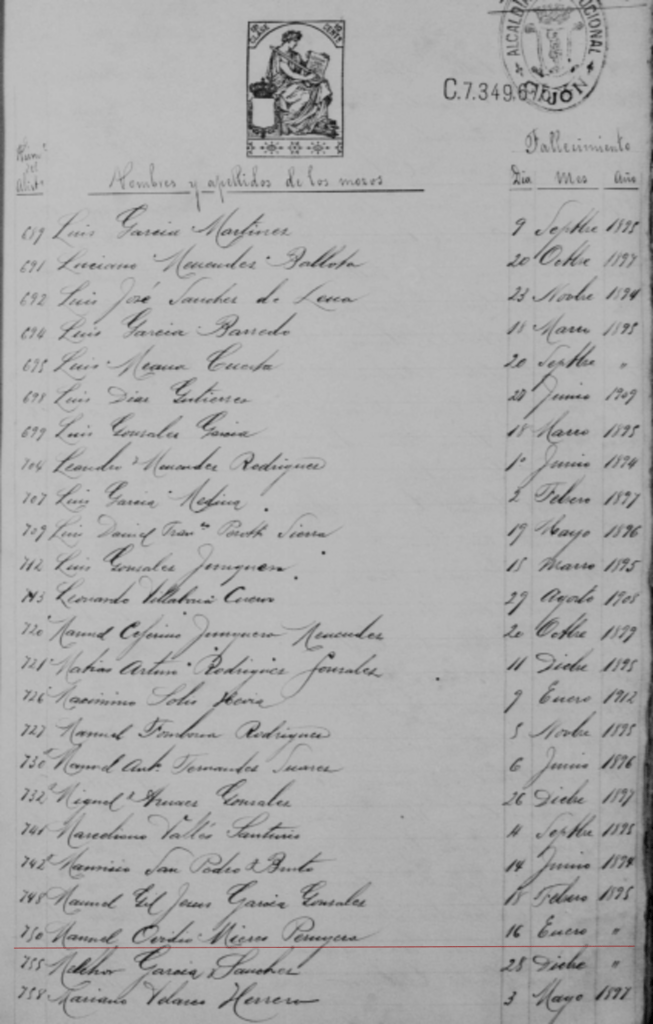 ALCALDIA CIONAL
GIJÓN
CLASE CENTS
C.7.349.6
Fallecimiento
Núm. del Alist.
Nombres y apellidos de los mozos
Dia Mes Año
689 Luis Garcia Martinez 9 Septbre 1895
691 Luciano Menendez Ballota 20 Octbre 1897
692 Luis José Sanchez de Lena 23 Novbre 1894
694 Luis Garcia Barredo 18 Marzo 1895
695 Luis Meana Cuesta 20 Septbre "
698 Luis Diaz Gutierrez 28 Junio 1909
699 Luis Gonzalez Garcia 18 Marzo 1895
704 Leandro Menendez Rodriguez 1º Junio 1894
707 Luis Garcia Medina 2 Febero 1897
709 Luis Daniel Fran.co Sierra 19 Mayo 1896
712 Luis Gonzalez Junquera 15 Marzo 1895
713 Leonardo Villabona Cuervo 29 Agosto 1905
720 Manuel Ceferino Junquera Menendez 20 Octbre 1899
721 Matias Arturo Rodriguez Gonzalez 11 Dicbre 1895
726 Maximino Solis Hevia 9 Enero 1912
727 Manuel Fombona Rodriguez 5 Novbre 1895
730 Manuel Ant. Fernandez Suarez 6 Junio 1896
732 Miguel Gonzalez 26 Dicbre 1897
741 Marceliano Vallés Santurio 11 Septbre 1895
742 Mauricio San Pedro Brito 14 Junio 1894
748 Manuel Gil Jesus Garcia Gonzalez 18 Febero 1895
750 Manuel Ovidio Mieres Peruyera 16 Enero "
755 Melchor Garcia Sanchez 28 Dicbre "
758 Mariano Velasco Herrero 3 Mayo 1897